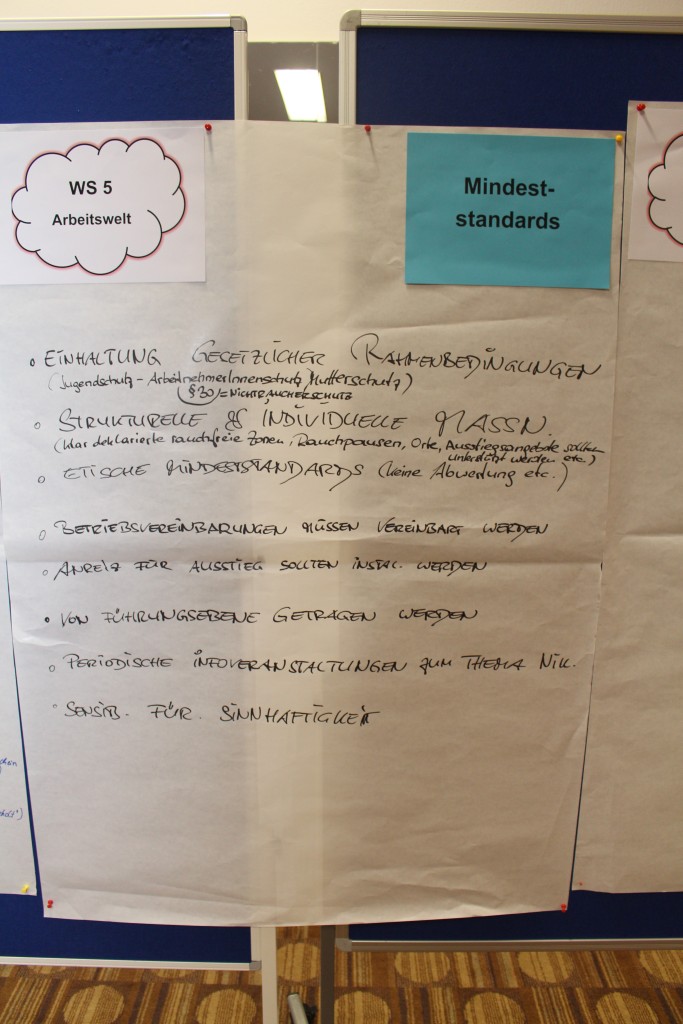 WS 5
Arbeitswelt
Mindest-
standards
EINHALTUNG GESETZLICHER RAHMENBEDINGUNGEN
(Jugendschutz - ArbeitnehmerInnenschutz, Mutterschutz)
§30/= NICHTRAUCHERSCHUTZ
STRUKTURELLE & INDIVIDUELLE MASSN.
(klar deklarierte rauchfreie Zonen, Rauchpausen, Orte, Ausstiegsangebote sollten
unterstützt werden etc.)
ETISCHE MINDESTSTANDARDS (keine Abwertung etc.)
BETRIEBSVEREINBARUNGEN MÜSSEN VEREINBART WERDEN
ANREIZ FÜR AUSSTIEG SOLLTEN INSTAL. WERDEN
VON FÜHRUNGSEBENE GETRAGEN WERDEN
PERIODISCHE INFOVERANSTALTUNGEN ZUM THEMA NIK.
SENSIB. FÜR. SINNHAFTIGKEIT